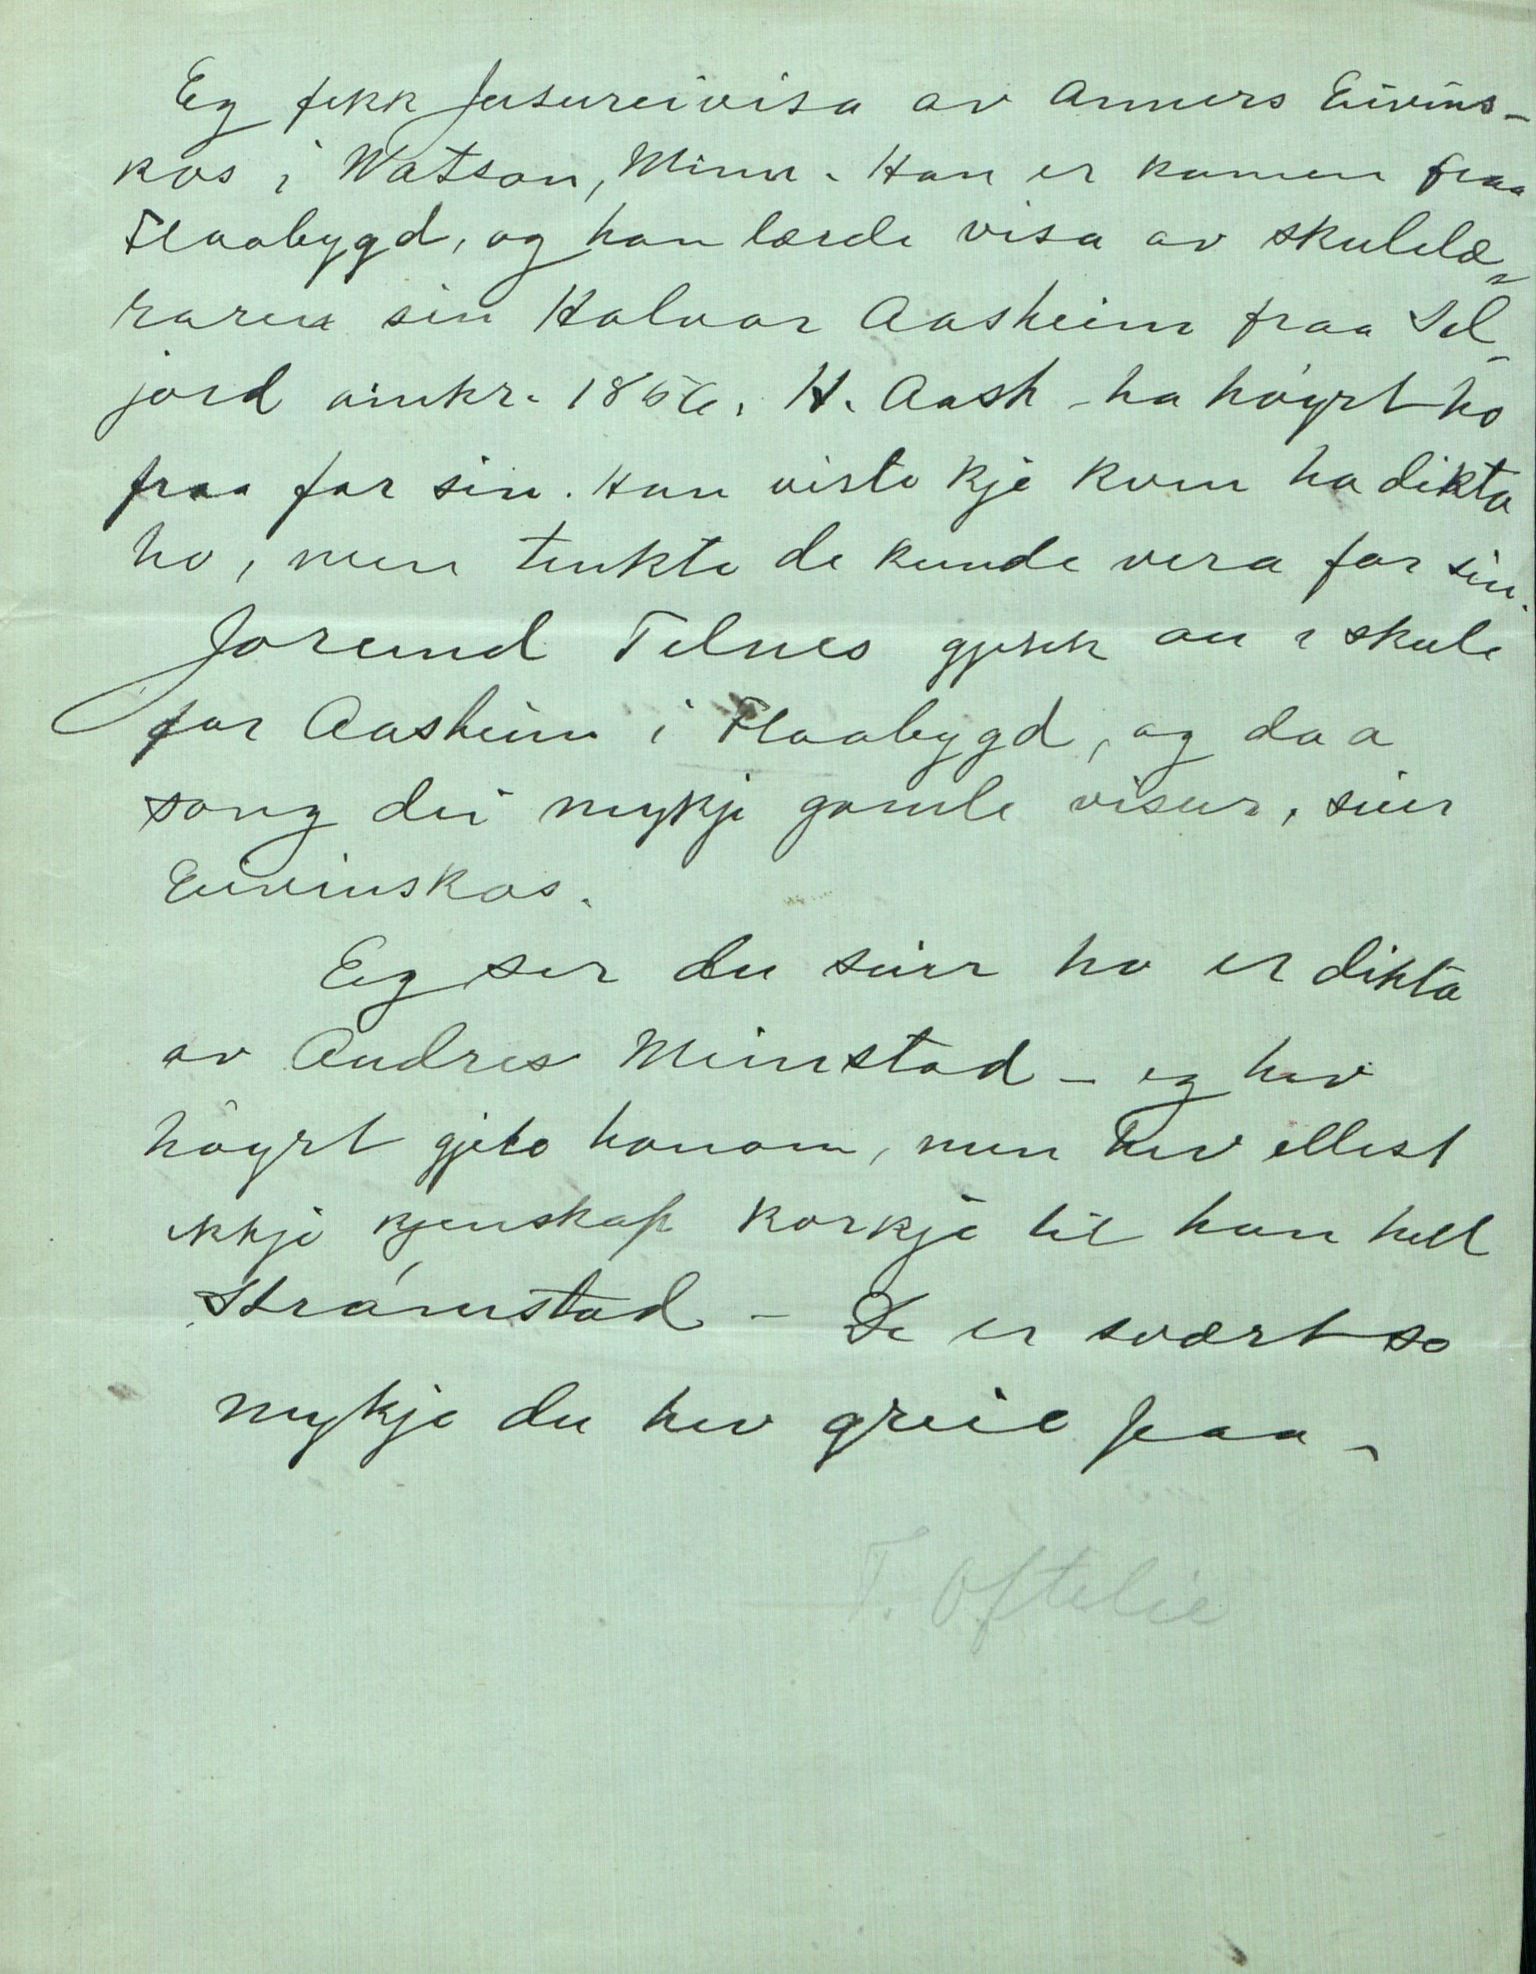 Eg fekk Jusureivisa av Anners Eivins-
kas i Watson, Minn. Han er komen fraa
Flaabygd, og han lærde visa av skulelæ-
raren sin Halvor Aasheim fraa Sel-
jord omkr. 1856. H. Aash - ha høyrt ho
fraa far sin. Han viste kje kven ha dikta
ho, men tenkte de kunde vera far sin.
Jorund Telnes gjekk au i skule
for Aasheim i Flaabygd, og daa
song dei mykje gamle visur, seier
Eivinskas.
Eg ser du seier ho er dikta
av Andres Meinstad - eg hev
høyrt gjeto honom, men hev ellest
ikkje kjenskap korkje til han hell
Strømstad - De er svært so
mykje du hev greie paa -
T. Oftelie